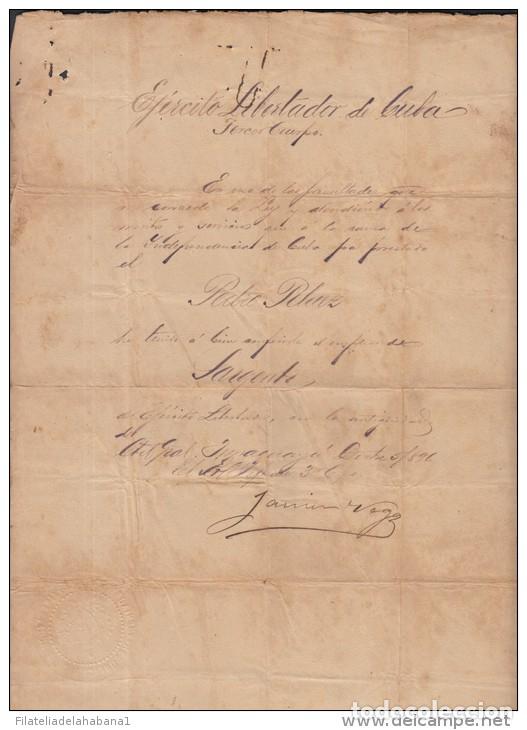 Ejército Libertador de Cuba
Tercer Cuerpo.
En uso de las facultades que
me concede la Ley y atendiendo á los
meritos y servicios que á la causa de
la Independencia de Cuba ha prestado
el
Pedro Pelaez
he tenido á bien conferirle el empleo de
Sargento,
de Ejército Libertador, con la antigüedad
del
Ctel Gral.
El 3
Javier Vega
FilateliadelaHabana1
todocoleccion
www.todocoleccion.net